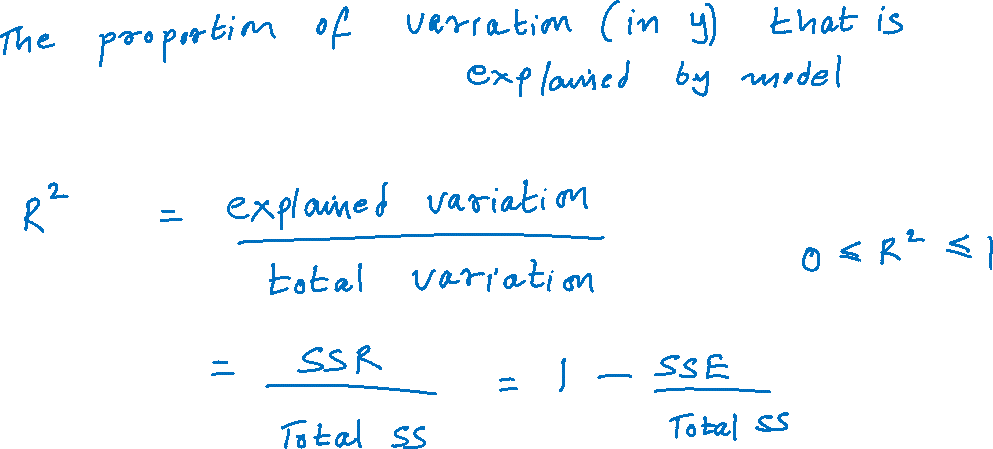 The proportion of variation (in y) that is
explained by model
R² = explained variation / total variation 0 ≤ R² ≤ 1
= SSR / Total SS = 1 - SSE / Total SS